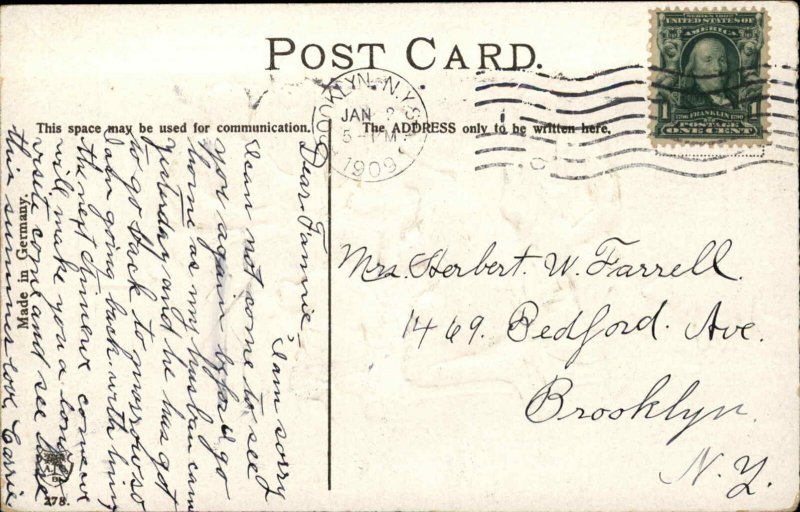 POST CARD.
BROOKLYN, N.Y.
JAN 2
5 - PM
1909
SERIES 1902
UNITED STATES OF
AMERICA
1 1
1706 FRANKLIN 1790
POSTAGE
ONE CENT
This space may be used for communication.
The ADDRESS only to be written here.
Dear Fannie,
I am sorry
I can not come to see
you again before I go
home as my husban came
yesterday and he has got
to go back to morrow so
I am going back with him
the next time we come we
will make you a long
visit come and see
this summer love Carrie
Mrs. Herbert. W. Farrell.
1469. Bedford. Ave.
Brooklyn.
N. Y.
Made in Germany.
278.